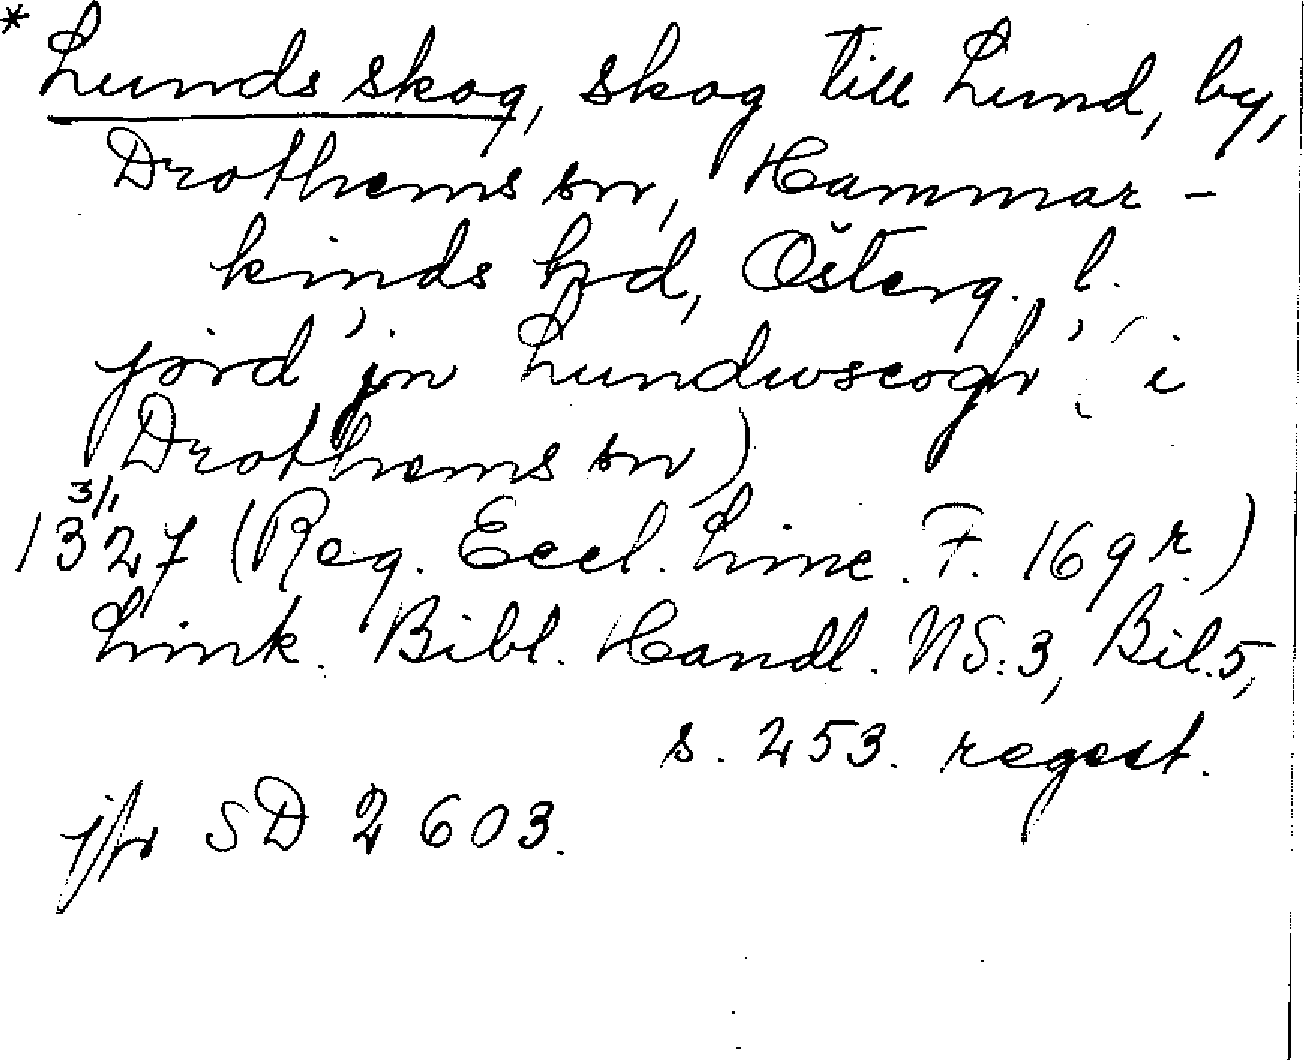 * Lunds skog, skog till Lund, by,
Drothems sn, Hammar-
kinds hd, Österg. l.
jord 'jn Lundwscogh' (i
Drothems sn)
13 3/1 27 (Reg. Eccl. Linc. F. 169 r.)
Link. Bibl. Handl. NS:3, Bil. 5,
s. 253. regest.
jfr SD 2603.